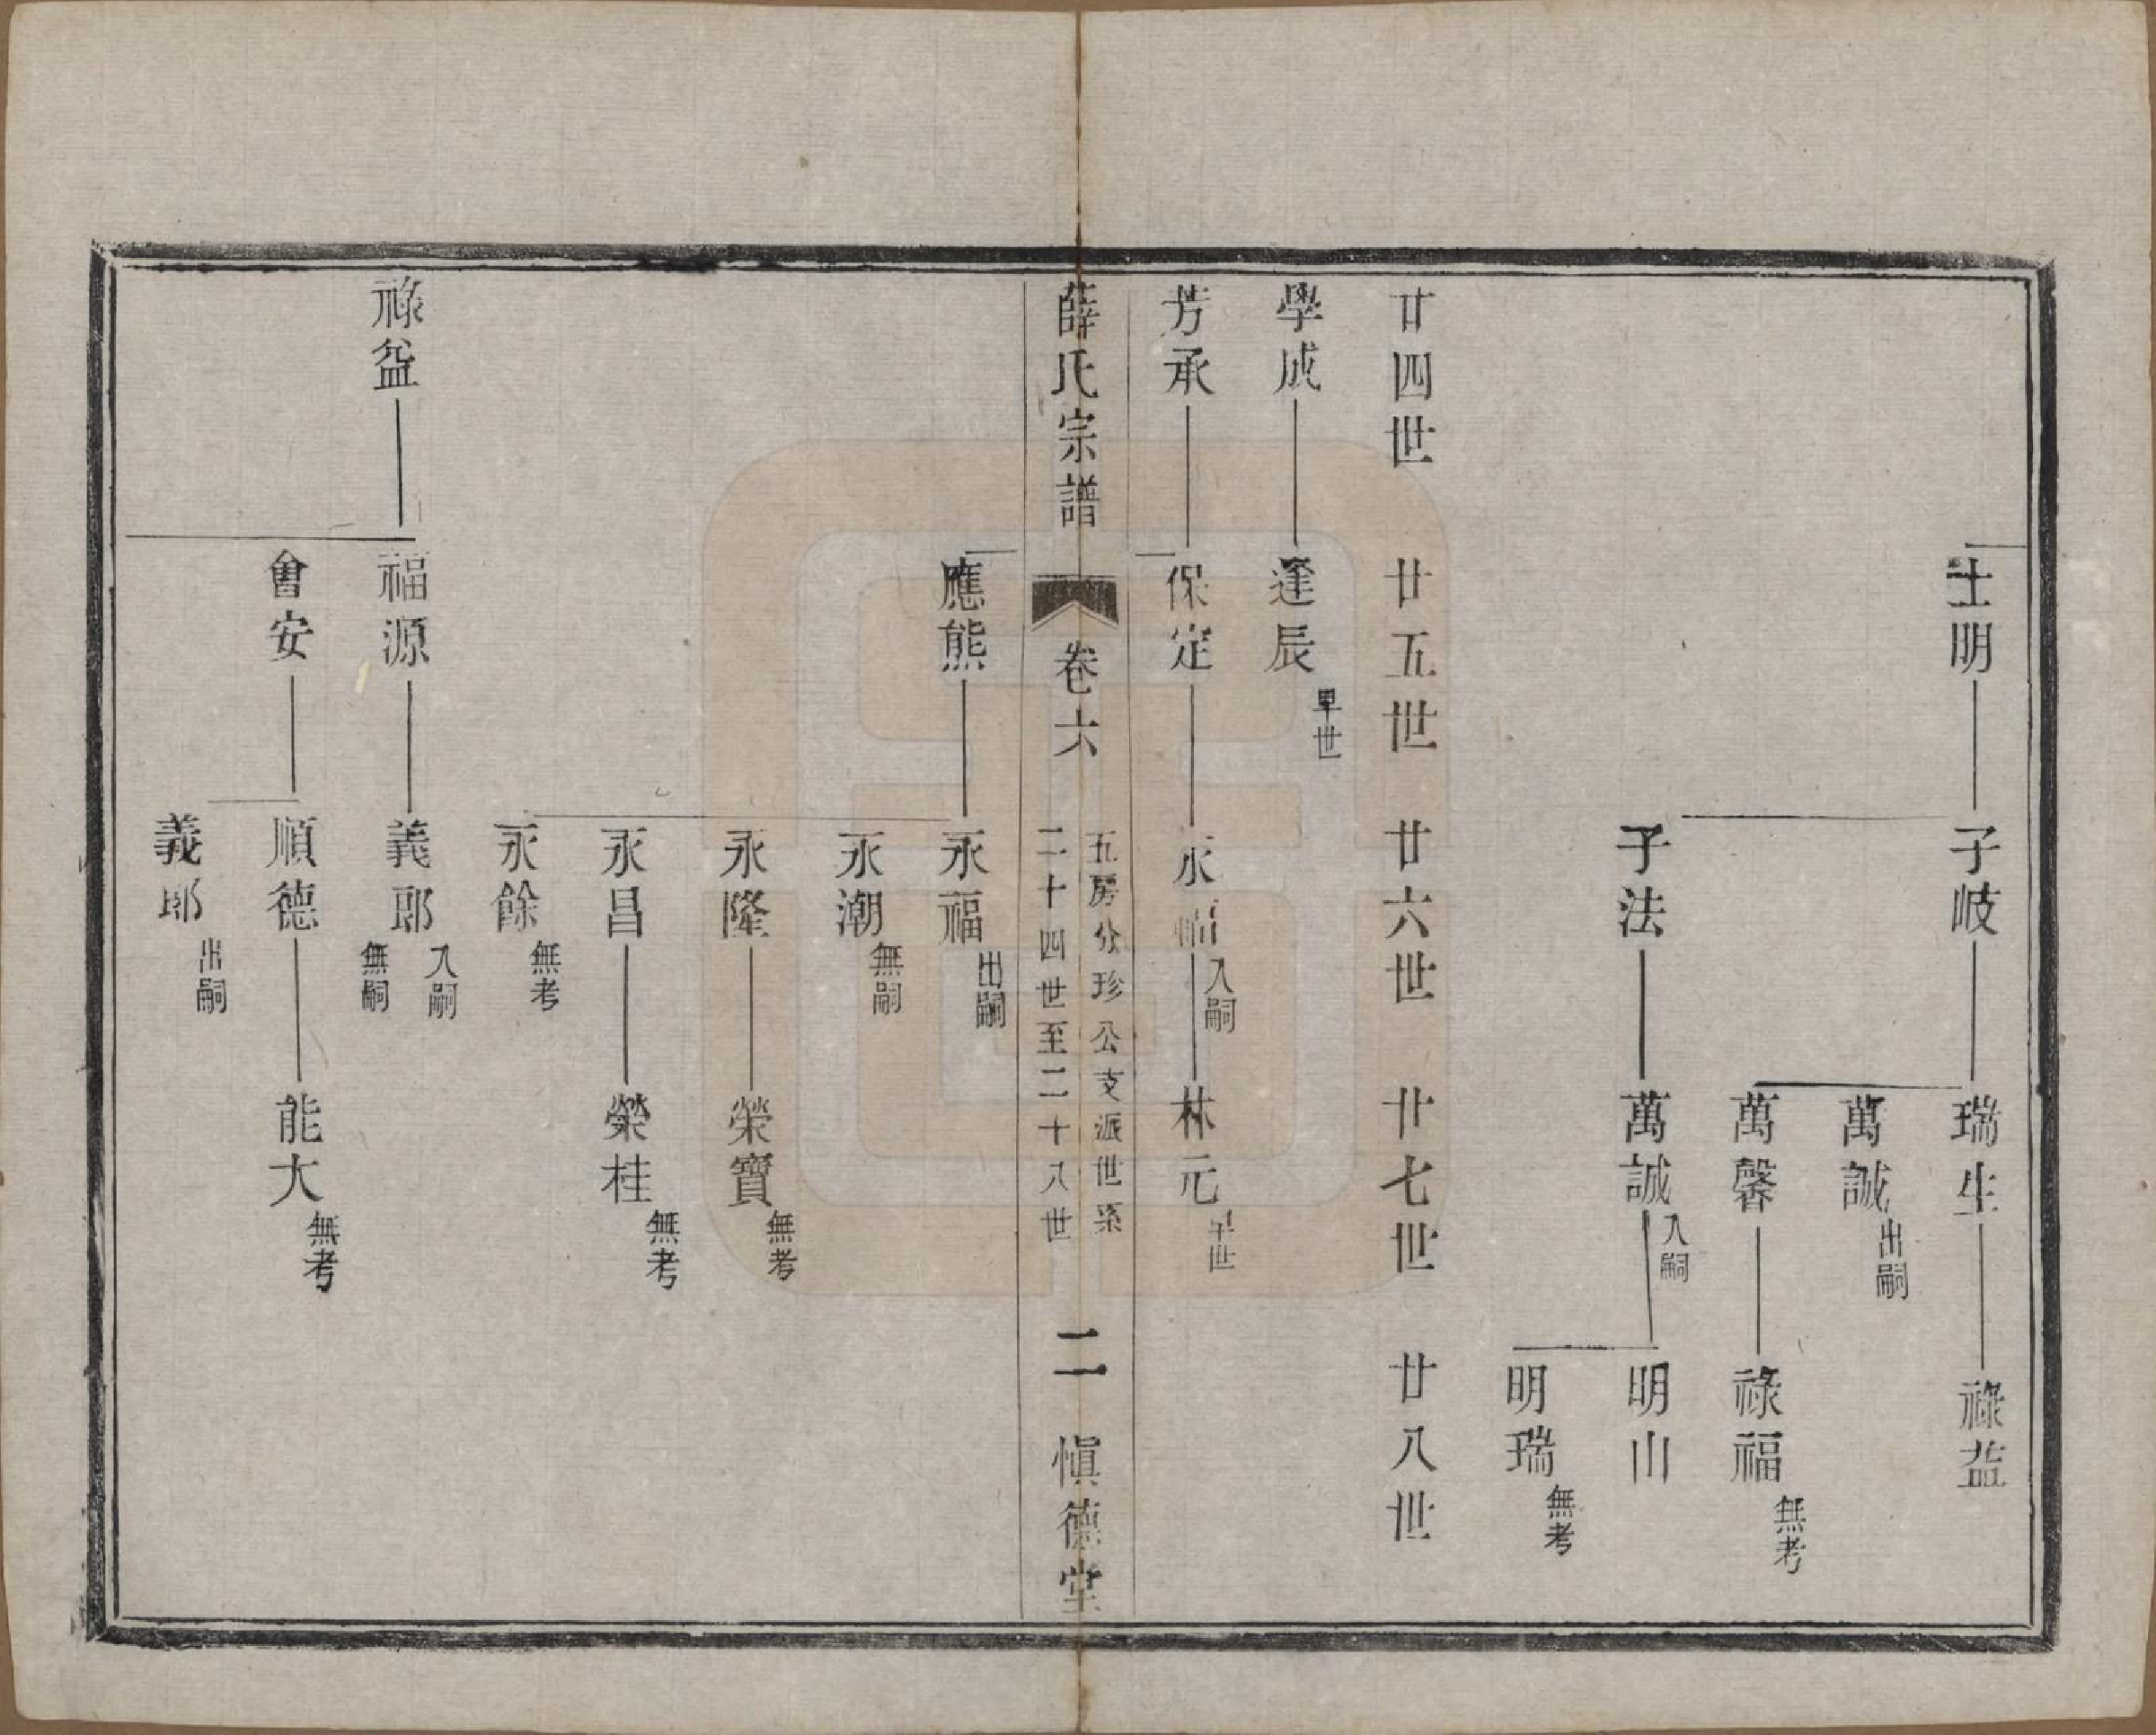 士明 子岐 瑞生 祿益
萬誠 出嗣
萬馨 祿福 無考
子法 萬誠 入嗣 明山
明瑞 無考
廿四世 廿五世 廿六世 廿七世 廿八世
學成 逢辰 早世
芳承 保定 永福 入嗣 林元 早世
薛氏宗譜 卷六 五房分珍公支派世系 二十四世至二十八世 二 愼德堂
應熊 永福 出嗣
永潮 無嗣
永隆 榮寶 無考
永昌 榮桂 無考
永餘 無考
祿益 福源 義郎 入嗣 無嗣
會安 順德 能大 無考
義郎 出嗣